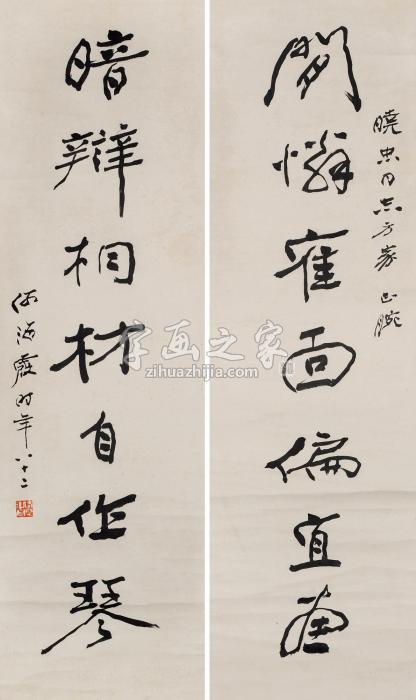 曉忠同志方家正腕
閒憐隺面偏宜畫
暗辯桐材自作琴
何海霞时年八十二
字画之家
zihuazhijia.com